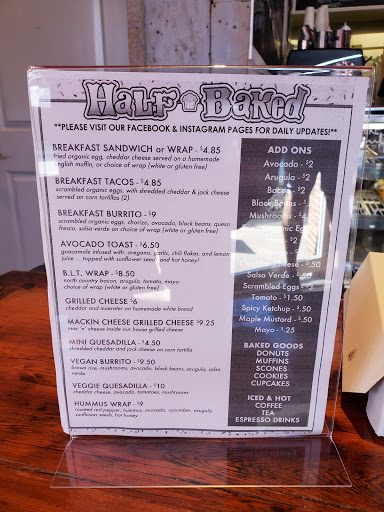 Half Baked
**PLEASE VISIT OUR FACEBOOK & INSTAGRAM PAGES FOR DAILY UPDATES!**
BREAKFAST SANDWICH or WRAP - $4.85
fried organic egg, cheddar cheese served on a homemade
english muffin, or choice of wrap (white or gluten free)
BREAKFAST TACOS - $4.85
scrambled organic eggs, with shredded cheddar & jack cheese
served on corn tortillas (2)
BREAKFAST BURRITO - $9
scrambled organic eggs, chorizo, avocado, black beans, queso
fresco, salsa verde on choice of wrap (white or gluten free)
AVOCADO TOAST - $6.50
guacamole infused with: oregano, garlic, chili flakes, and lemon
juice ... topped with sunflower seeds and hot honey!
B.L.T. WRAP - $8.50
north country bacon, arugula, tomato, mayo
choice of wrap (white or gluten free)
GRILLED CHEESE $6
cheddar and muenster on homemade white bread
MACKIN CHEESE GRILLED CHEESE $9.25
mac 'n' cheese inside our house grilled cheese
MINI QUESADILLA - $4.50
shredded cheddar and jack cheese on corn tortilla
VEGAN BURRITO - $9.50
brown rice, mushrooms, avocado, black beans, arugula, salsa
verde
VEGGIE QUESADILLA - $10
cheddar cheese, avocado, tomatoes, mushrooms
HUMMUS WRAP - $9
roasted red pepper, hummus, avocado, cucumber, arugula,
sunflower seeds, hot honey
ADD ONS
Avocado - $2
Arugula -
Bacon
Black Beans -
Mushrooms -
Organic Egg
- $2
Cheese - .50
Salsa Verde - $
Scrambled Eggs -
Tomato - $1.50
Spicy Ketchup - $.50
Maple Mustard - $.50
Mayo - $.25
BAKED GOODS
DONUTS
MUFFINS
SCONES
COOKIES
CUPCAKES
ICED & HOT
COFFEE
TEA
ESPRESSO DRINKS